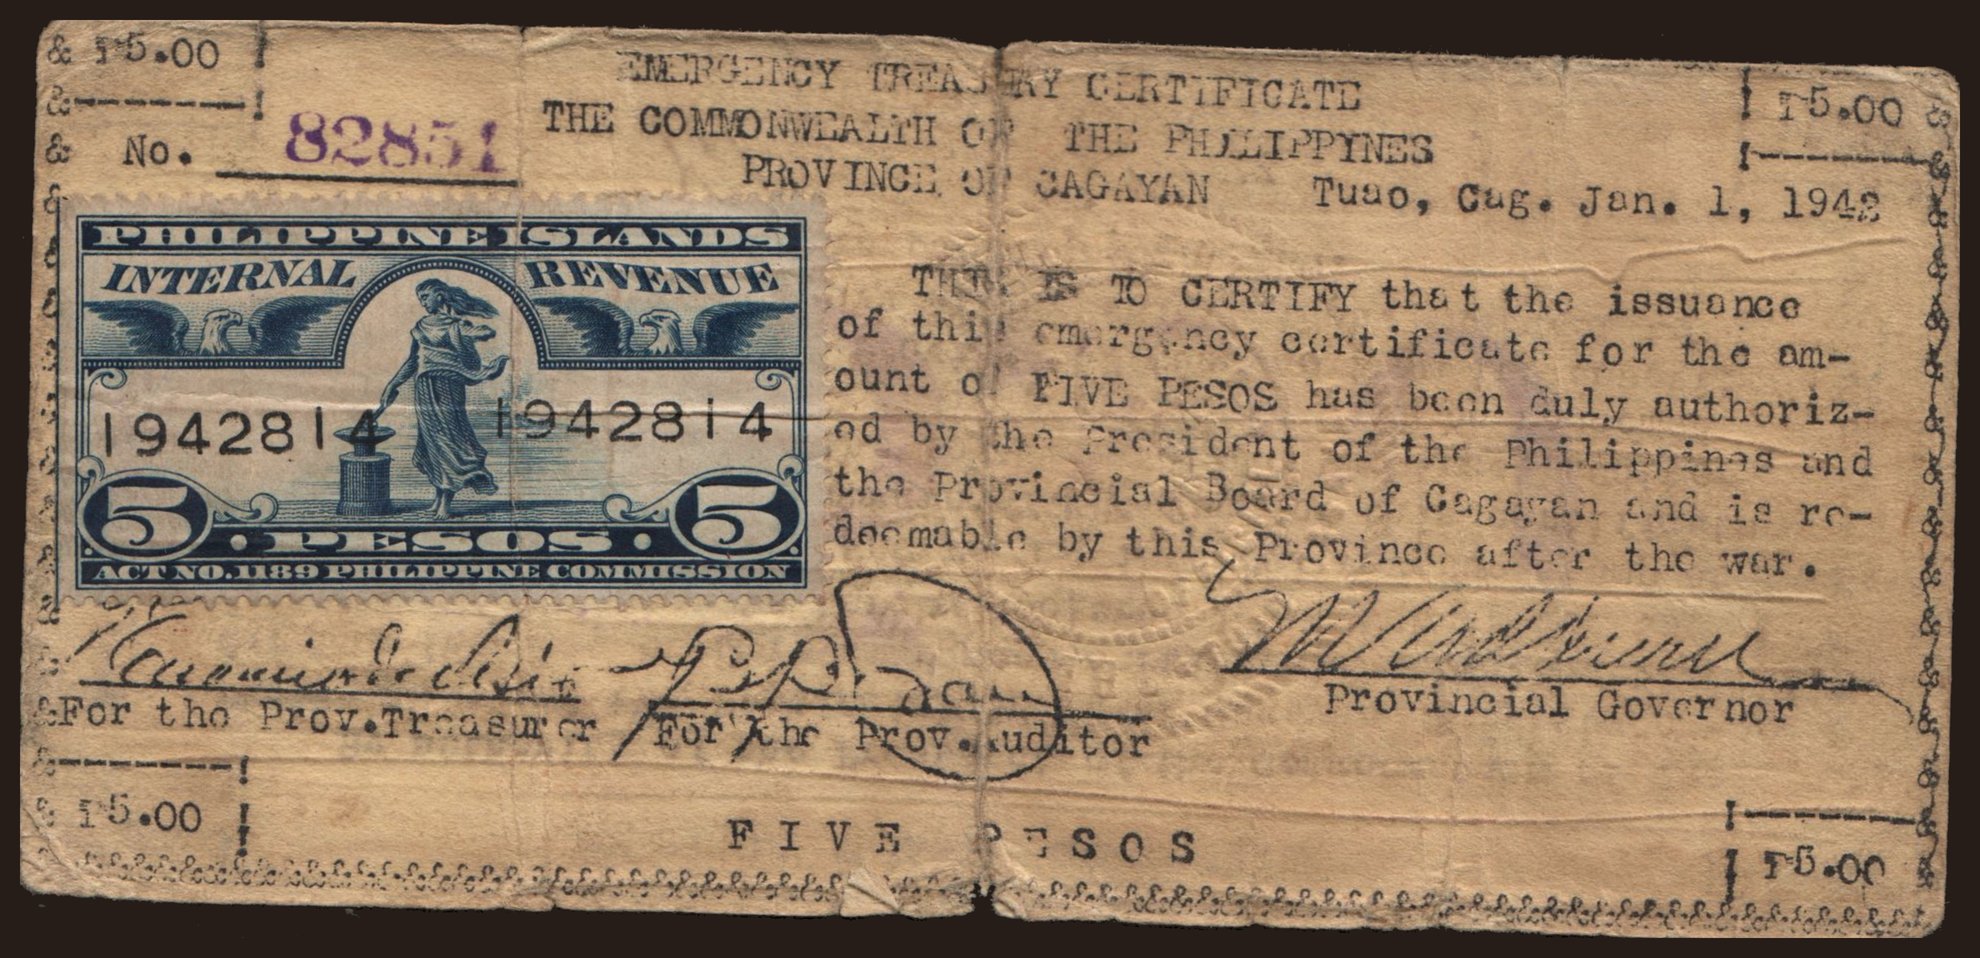 ₱5.00
EMERGENCY TREASURY CERTIFICATE
₱5.00
THE COMMONWEALTH OF THE PHILIPPINES
No. 82851
PROVINCE OF CAGAYAN
Tuao, Cag. Jan. 1, 1942
PHILIPPINE ISLANDS
INTERNAL REVENUE
1942814 1942814
5 PESOS 5
ACT NO. 1189 PHILIPPINE COMMISSION
THIS IS TO CERTIFY that the issuance
of this emergency certificate for the am-
ount of FIVE PESOS has been duly authoriz-
ed by the President of the Philippines and
the Provincial Board of Cagayan and is re-
deemable by this Province after the war.
For the Prov.Treasurer
For the Prov.Auditor
Provincial Governor
₱5.00
FIVE PESOS
₱5.00